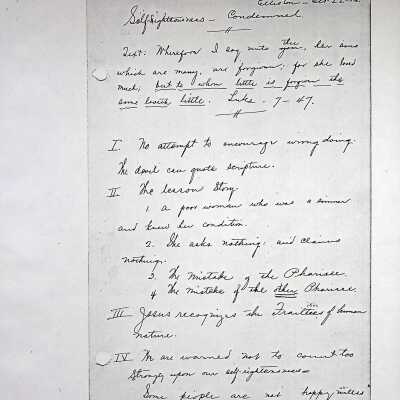 Elliston - Oct 22-
Self-righteousness - Condemned
Text: Wherefore I say unto thee, her sins
which are many, are forgiven; for she loved
much; but to whom little is forgiven the
same loveth little. Luke - 7 - 47.
I. No attempt to encourage wrong doing.
The devil can quote scripture.
II The lesson Story.
1. a poor woman who was a sinner
and knew her condition.
2. She asks nothing; and claims
nothing.
3. The Mistake of the Pharisee.
4 The Mistake of the other Pharisee.
III Jesus recognizes the Frailties of human
nature.
IV We are warned not to count too
strongly upon our self-righteousness
Some people are not happy unless